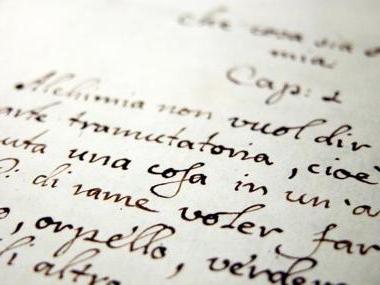 che cosa sia
mia:
Cap: 1
Alchimia non vuol dir
arte tramutatoria, cioè
una cosa in un'a
di rame voler far
o, orpello, verder
li altr